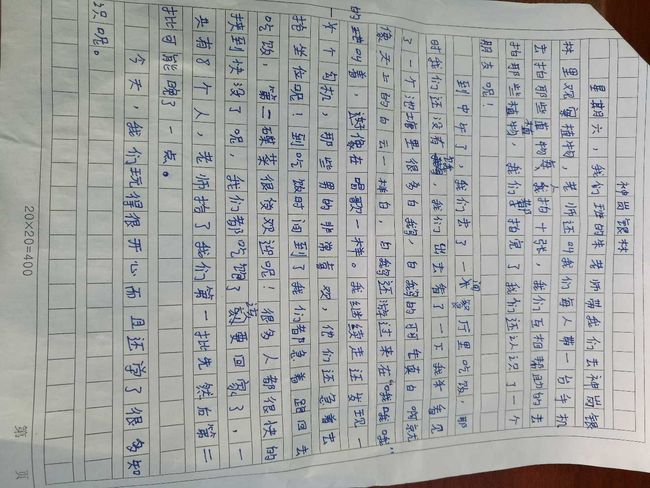 神岗银林
星期六，我们班的朱老师带我们去神岗银
林里观富植物，老师还叫我们每人带一台手机
去拍那些植物每人拍十张，我们互相帮助的去
拍那些植物，我们都拍完了我们还认识了一个
朋友呢！
到中午了，我们去了一个家餐厅里吃饭，那
时我们还没有我们出去看了一下我来看见
了一个池塘里很多白鹅，白鹅的羽毛真白啊就
像天上的白云一样白，白鹅还游过来在“哦哦哦”
的跳叫着，好像在唱歌一样。我继续走还发现一
个个句机，那些男的非常喜欢，他们还急着去
抢坐位呢！到吃饭时间到了我们都急着跑回去
吃饭，第二碟菜很受欢迎呢！很多人都很快的
挟到快没了呢，我们都吃饱了该要回家了，一
共有8个人，老师指了我们第一批先然后第二
批可能晚了一点。
今天，我们玩得很开心而且还学了很多知
识呢。
20×20=400
第 页